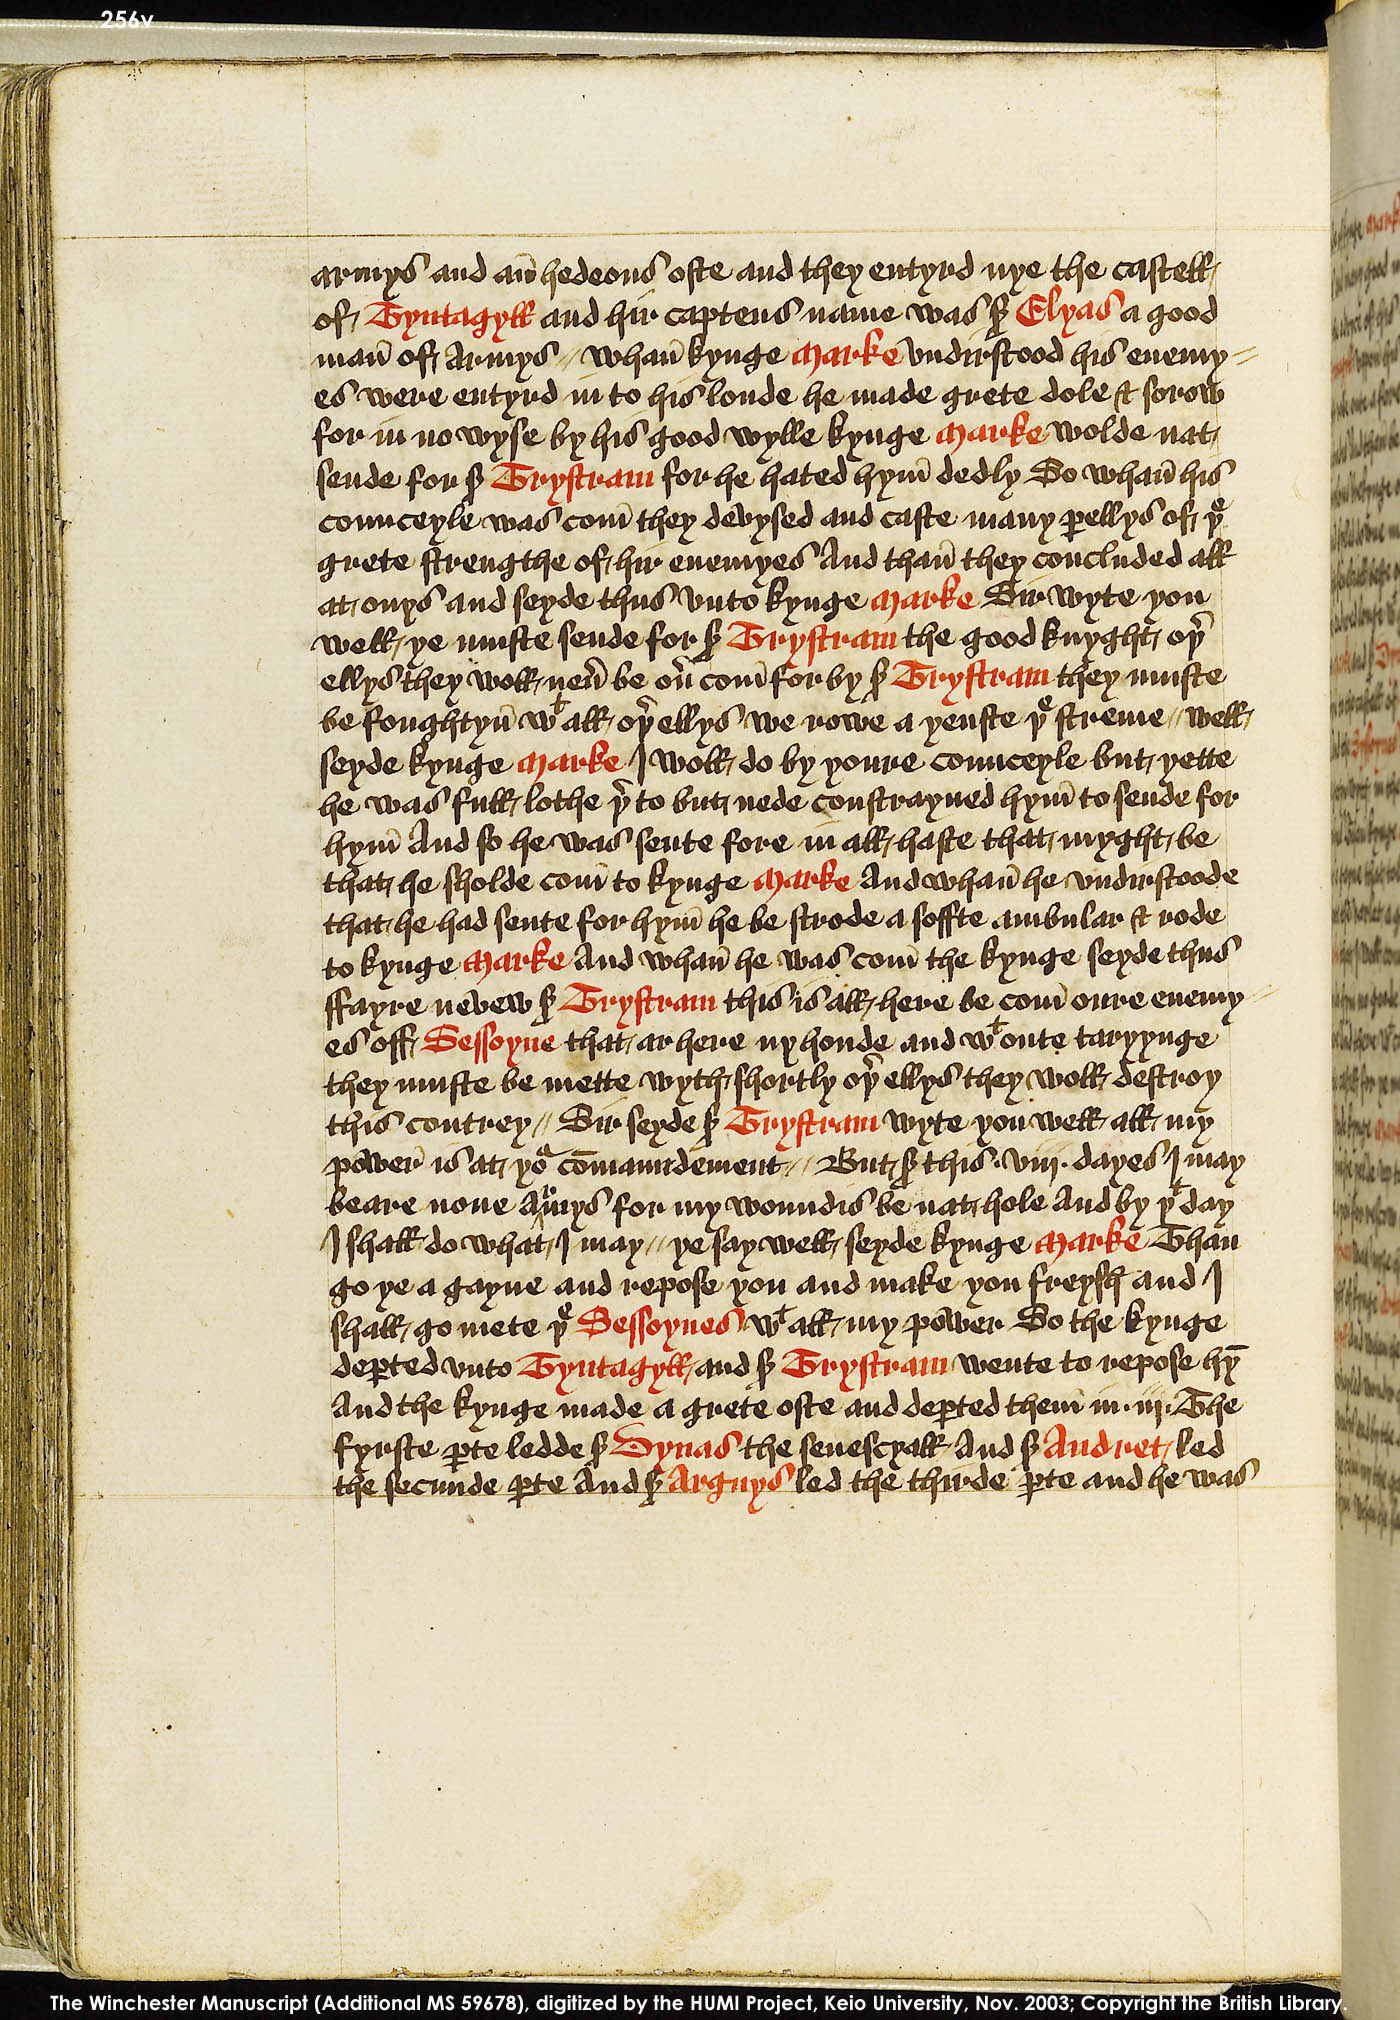 256v
armys and an̄ hedeous oste and they entyrd nye the castell
of Tyntagyll and hir captens name was sʳ Elyas a good
man̄ of Armys // whan̄ kynge Marke vndirstood his enemy=
es were entyrd in to his londe he made grete dole & sorow
for in no wyse by his good wylle kynge Marke wolde nat
sende for sʳ Trystram for he hated hym̄ dedly So whan̄ his
counceyle was com̄ they devysed and caste many ꝑellys of þᵉ
grete strengthe of hir enemyes And than̄ they concluded all
at onys and seyde thus vnto kynge Marke Sir wyte you
well ye muste sende for sʳ Trystram the good knyght oþʳ
ellys they woll neuˀ be ouˀ com̄ for by sʳ Trystram they muste
be foughtyn̄ wᵗ all oþʳ ellys we rowe a yenste þᵉ streme // well
seyde kynge Marke I woll do by youre counceyle but yette
he was full lothe þʳ to but nede constrayned hym̄ to sende for
hym̄ And so he was sente fore in all haste that myght be
that he sholde com̄ to kynge Marke And whan̄ he vndirstoode
that he had sente for hym̄ he be strode a soffte ambular & rode
to kynge Marke And whan̄ he was com̄ the kynge seyde thus
ffayre nevew sʳ Trystram this is all here be com̄ oure enemy=
es off Sessoyne that ar here ny honde and wᵗ oute taryynge
they muste be mette wyth shortly oþʳ ellys they woll destroy
this contrey // Sir seyde sʳ Trystram wyte you well all my
power̄ is at yoʳ com̄aundement // But sʳ this .viij. dayes I may
beare none Aʳmys for my woundis be nat hole And by þᵗ day
I shall do what I may // ye say well seyde kynge Marke Than
go ye a gayne and repose you and make you freysh and I
shall go mete þᵉ Sessoynes wᵗ all my power So the kynge
deꝑted vnto Tyntagyll and sʳ Trystram wente to repose hȳ
And the kynge made a grete oste and deꝑted them̄ in .iij. The
fyrste ꝑte ledde sʳ Dynas the senescyall And sʳ Andret led
the secunde ꝑte And sʳ Arguys led the thirde ꝑte and he was
The Winchester Manuscript (Additional MS 59678), digitized by the HUMI Project, Keio University, Nov. 2003; Copyright the British Library.